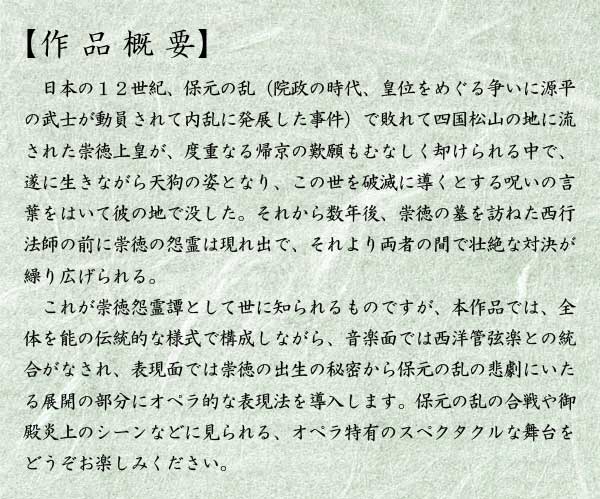 【作品概要】
　日本の１２世紀、保元の乱（院政の時代、皇位をめぐる争いに源平
の武士が動員されて内乱に発展した事件）で敗れて四国松山の地に流
された崇徳上皇が、度重なる帰京の歎願もむなしく却けられる中で、
遂に生きながら天狗の姿となり、この世を破滅に導くとする呪いの言
葉をはいて彼の地で没した。それから数年後、崇徳の墓を訪ねた西行
法師の前に崇徳の怨霊は現れ出で、それより両者の間で壮絶な対決が
繰り広げられる。
　これが崇徳怨霊譚として世に知られるものですが、本作品では、全
体を能の伝統的な様式で構成しながら、音楽面では西洋管弦楽との統
合がなされ、表現面では崇徳の出生の秘密から保元の乱の悲劇にいた
る展開の部分にオペラ的な表現法を導入します。保元の乱の合戦や御
殿炎上のシーンなどに見られる、オペラ特有のスペクタクルな舞台を
どうぞお楽しみください。